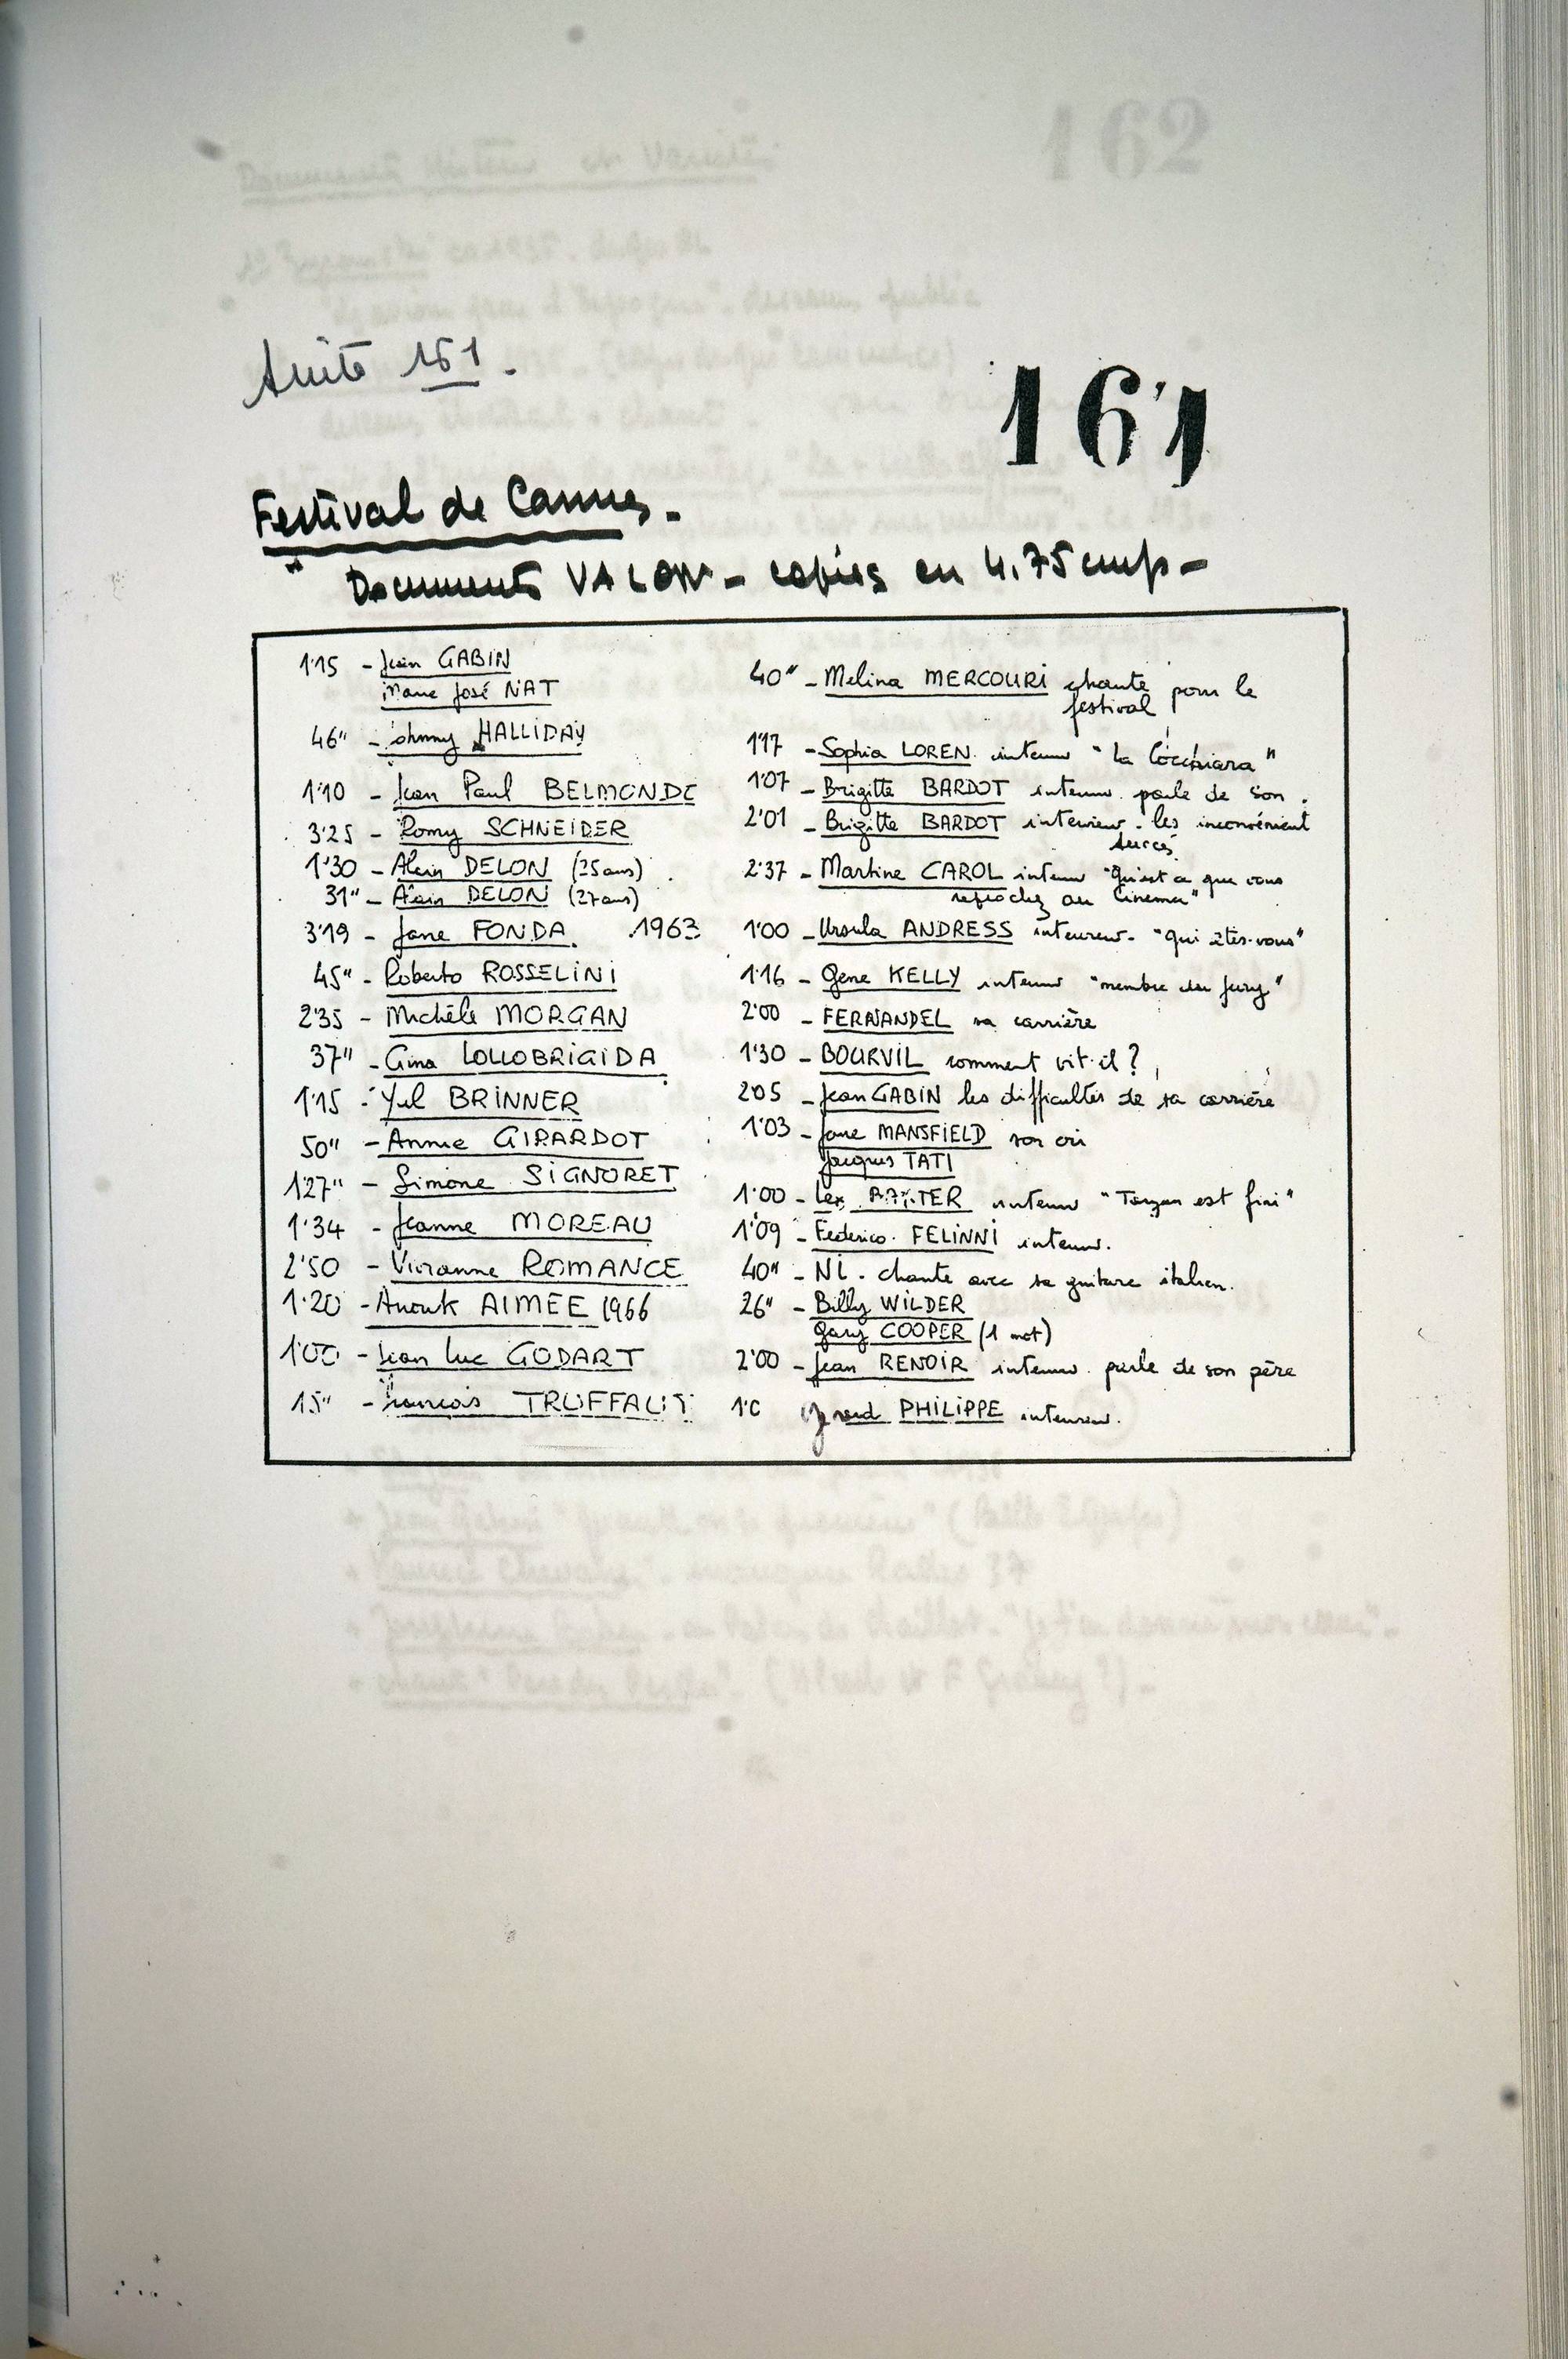 Suite 161.
161
Festival de Cannes.-
Documents VALON - copies en 4.75 cmps-
1'15 - Jean GABIN
Marie José NAT
46" - Johnny HALLIDAY
1'10 - Jean Paul BELMONDO
3'25 - Romy SCHNEIDER
1'30 - Alain DELON (25 ans)
31" - Alain DELON (27 ans)
3'19 - Jane FONDA 1963
45" - Roberto ROSSELINI
2'35 - Michèle MORGAN
37" - Gina LOLLOBRIGIDA
1'15 - Yul BRINNER
50" - Annie GIRARDOT
1'27" - Simone SIGNORET
1'34 - Jeanne MOREAU
2'50 - Vivianne ROMANCE
1'20 - Anouk AIMEE 1966
1'00 - Jean Luc GODART
15" - François TRUFFAUT
40" - Melina MERCOURI chante pour le
festival
1'17 - Sophia LOREN interview "La Cocchiara"
1'07 - Brigitte BARDOT interview. parle de son
2'01 - Brigitte BARDOT interview - les inconvénient
succes
2'37 - Martine CAROL interview "Qu'est ce que vous
reprochez au Cinema"
1'00 - Ursula ANDRESS interview - "Qui êtes-vous"
1'16 - Gene KELLY interview "membre du jury"
2'00 - FERNANDEL sa carrière
1'30 - BOURVIL comment vit-il ?
2'05 - Jean GABIN les difficultés de sa carrière
1'03 - Jane MANSFIELD son cri
Jacques TATI
1'00 - Lex BARTER interview "Tarzan est fini"
1'09 - Federico FELINNI interview.
40" - NI. chante avec sa guitare italien.
26" - Billy WILDER
Gary COOPER (1 mot)
2'00 - Jean RENOIR interview. parle de son père
1'0 Gérard PHILIPPE interview.
162